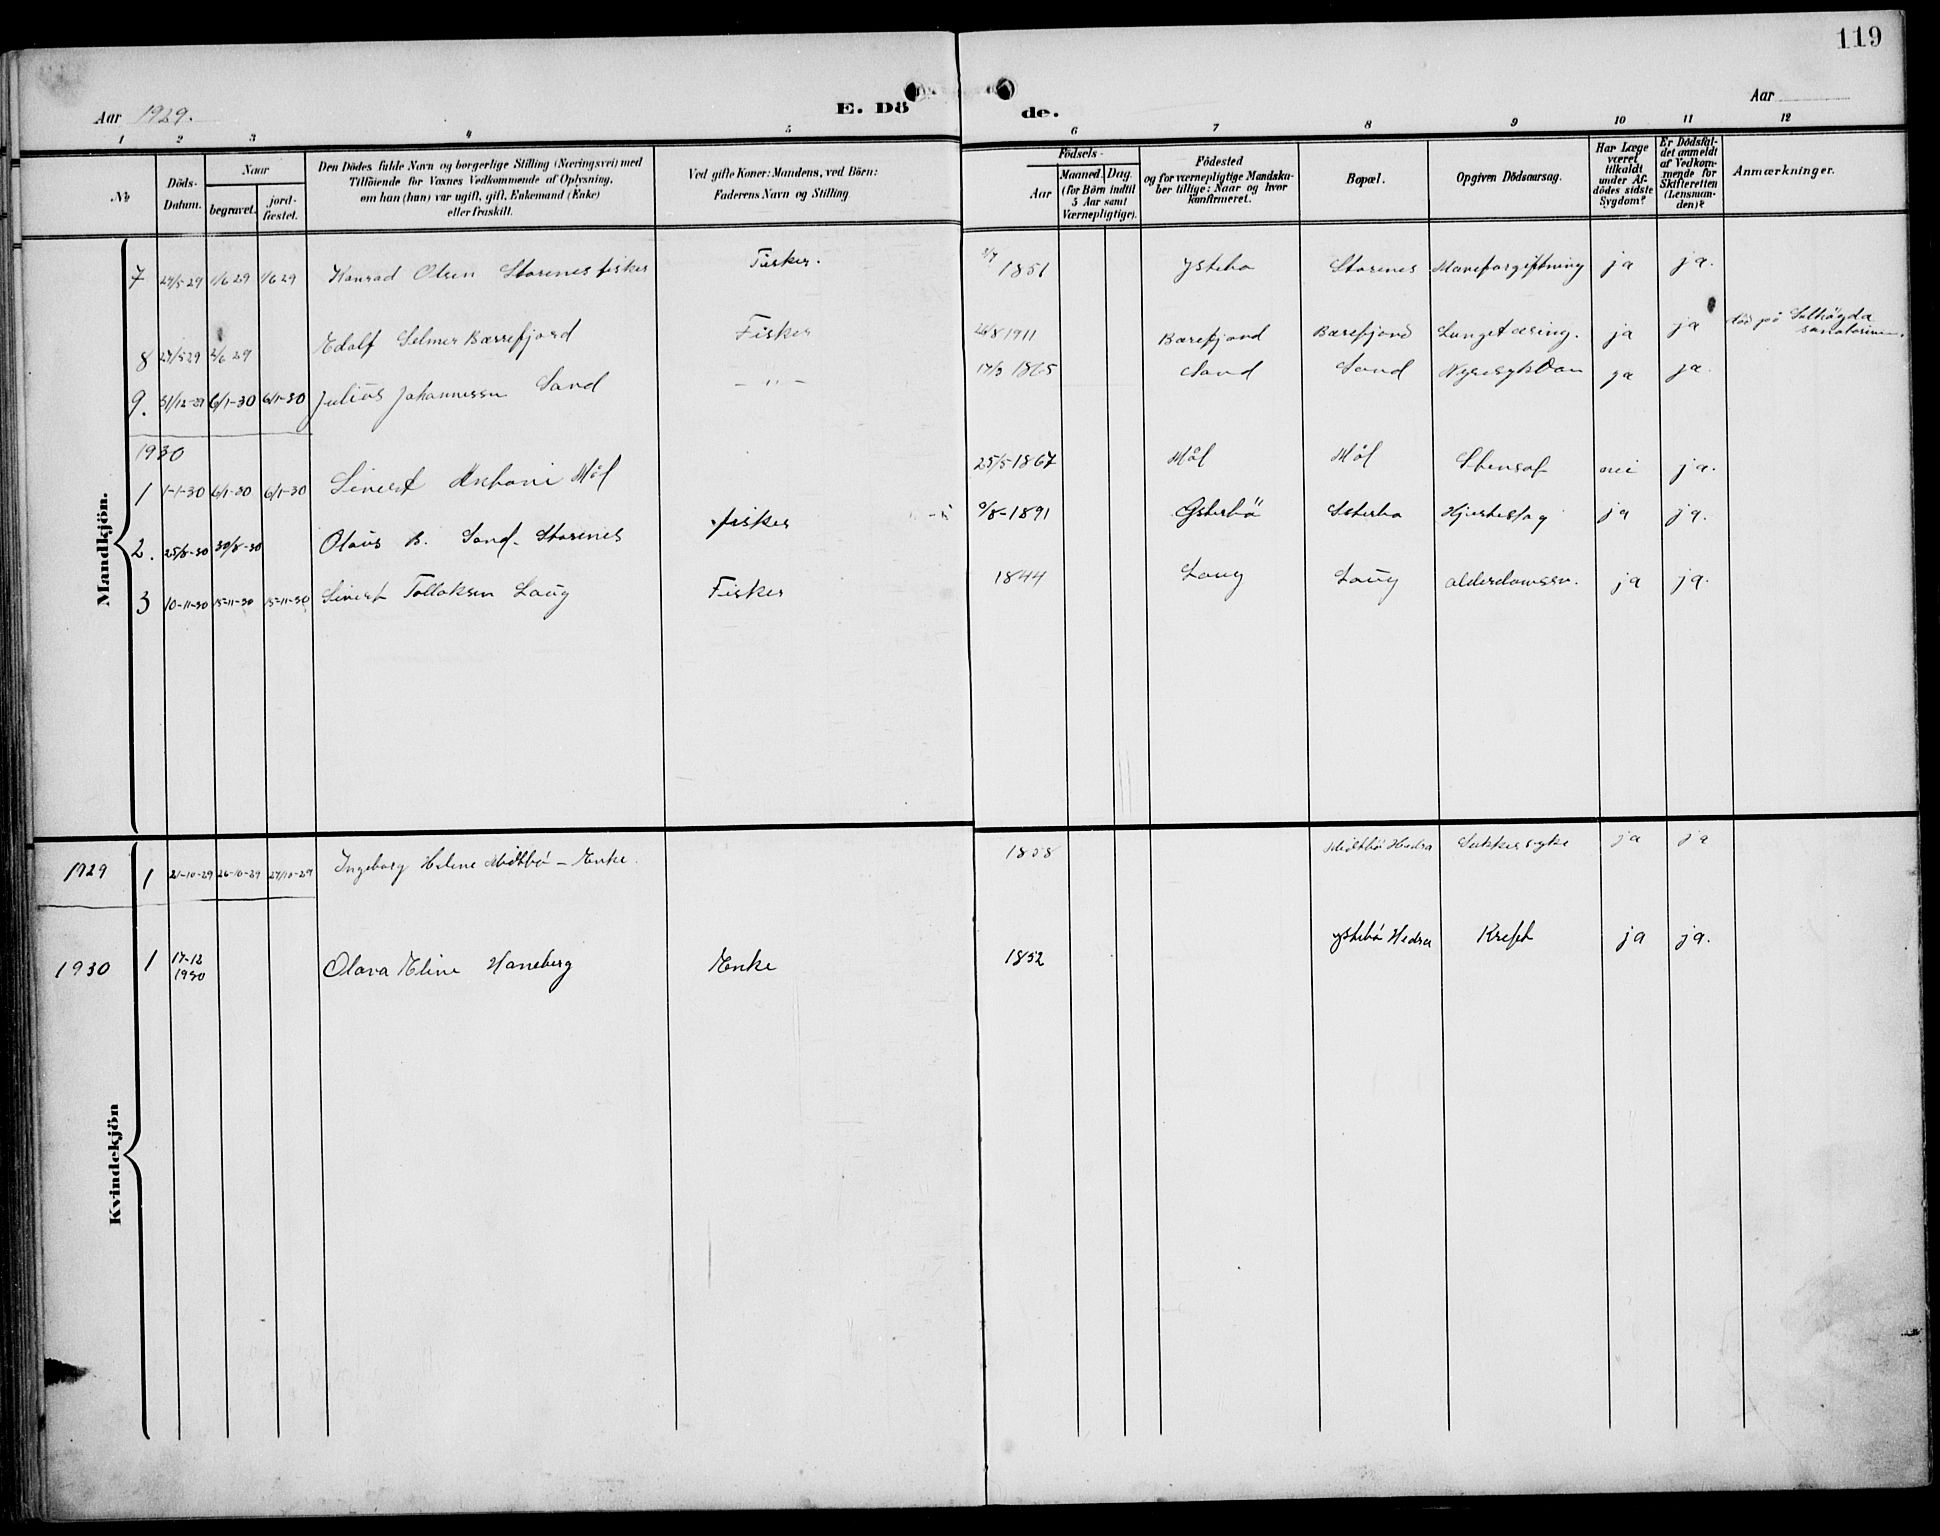 119
Aar 1929.
E. Dö de.
Aar
1 2 3 4 5 6 7 8 9 10 11 12
No
Döds-
Datum.
Naar
begravet.
jord-
fæstet.
Den Dödes fulde Navn og borgerlige Stilling (Næringsvei) med
Tilföiende for Voxnes Vedkommende af Oplysning,
om han (hun) var ugift, gift, Enkemand (Enke)
eller fraskilt.
Ved gifte Koner: Mandens, ved Börn:
Faderens Navn og Stilling
Födsels-
Aar
Maaned. Dag.
(for Börn indtil
5 Aar samt
Værnepligtige).
Födested
og for værnepligtige Mandska-
ber tillige: Naar og hvor
konfirmeret.
Bopæl.
Opgiven Dödsaarsag.
Har Læge
været
tilkaldt
under Af-
dödes sidste
Sygdom?
Er Dödsfal-
det anmeldt
af Vedkom-
mende for
Skifteretten
(Lensman-
den)?
Anmærkninger.
Mandkjön.
7 1/6 29 1/6 29 Konrad Olsen Storenes fisker Fisker. 1851 Ystebo Storenes Maveforgiftning ja ja.
8 29 2/6 29 Edolf Selmer Barrefjord Fisker 26/8 1911 Barefjord Barefjord Lungetæring. ja ja död på sanatorium.
9. 31/12-29 6/1-30 6/1-30 Julius Johannessen Sand - " - 17/3 1865 Sand Sand Nyresykdom ja ja.
1930
1 1-1-30 6/1-30 6/1-30 Sivert Antoni Mål 25/5-1867 Mål Mål nei ja.
2. 25/8-30 30/8-30 Olaus B. Sand-Storenes fisker 1891 Ysterbö Isterbo Hjerteslag ja ja.
3 10-11-30 15-11-30 15-11-30 Sivert Tollaksen Laug Fisker 1844 Laug Laug alderdomssv. ja ja.
Kvindekjön
1929 1 21-10-29 26-10-29 27/10-29 Ingeborg Helene Midtbö - Enke. 1858 Midtbö Hidra Sukkersyke ja ja
1930 1 17-12
1930 Olava Eline Haneberg Enke 1852 Ystebö Hidra Kreft ja ja.